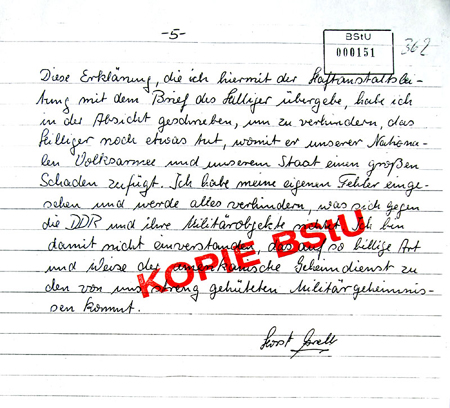 -5-
BStU
000151
362
Diese Erklärung, die ich hiermit der Haftanstaltslei-
tung mit dem Brief des Hilliger übergebe, habe ich
in der Absicht geschrieben, um zu verhindern, das
Hilliger noch etwas tut, womit er unserer Nationa-
len Volksarmee und unserem Staat einen großen
Schaden zufügt. Ich habe meine eigenen Fehler einge-
sehen und werde alles verhindern, was sich gegen
die DDR und ihre Militärobjekte richtet. Ich bin
damit nicht einverstanden das auf so billige Art
und Weise der amerikanische Geheimdienst zu
den von uns streng gehüteten Militärgeheimnis-
sen kommt.
KOPIE BStU
Horst